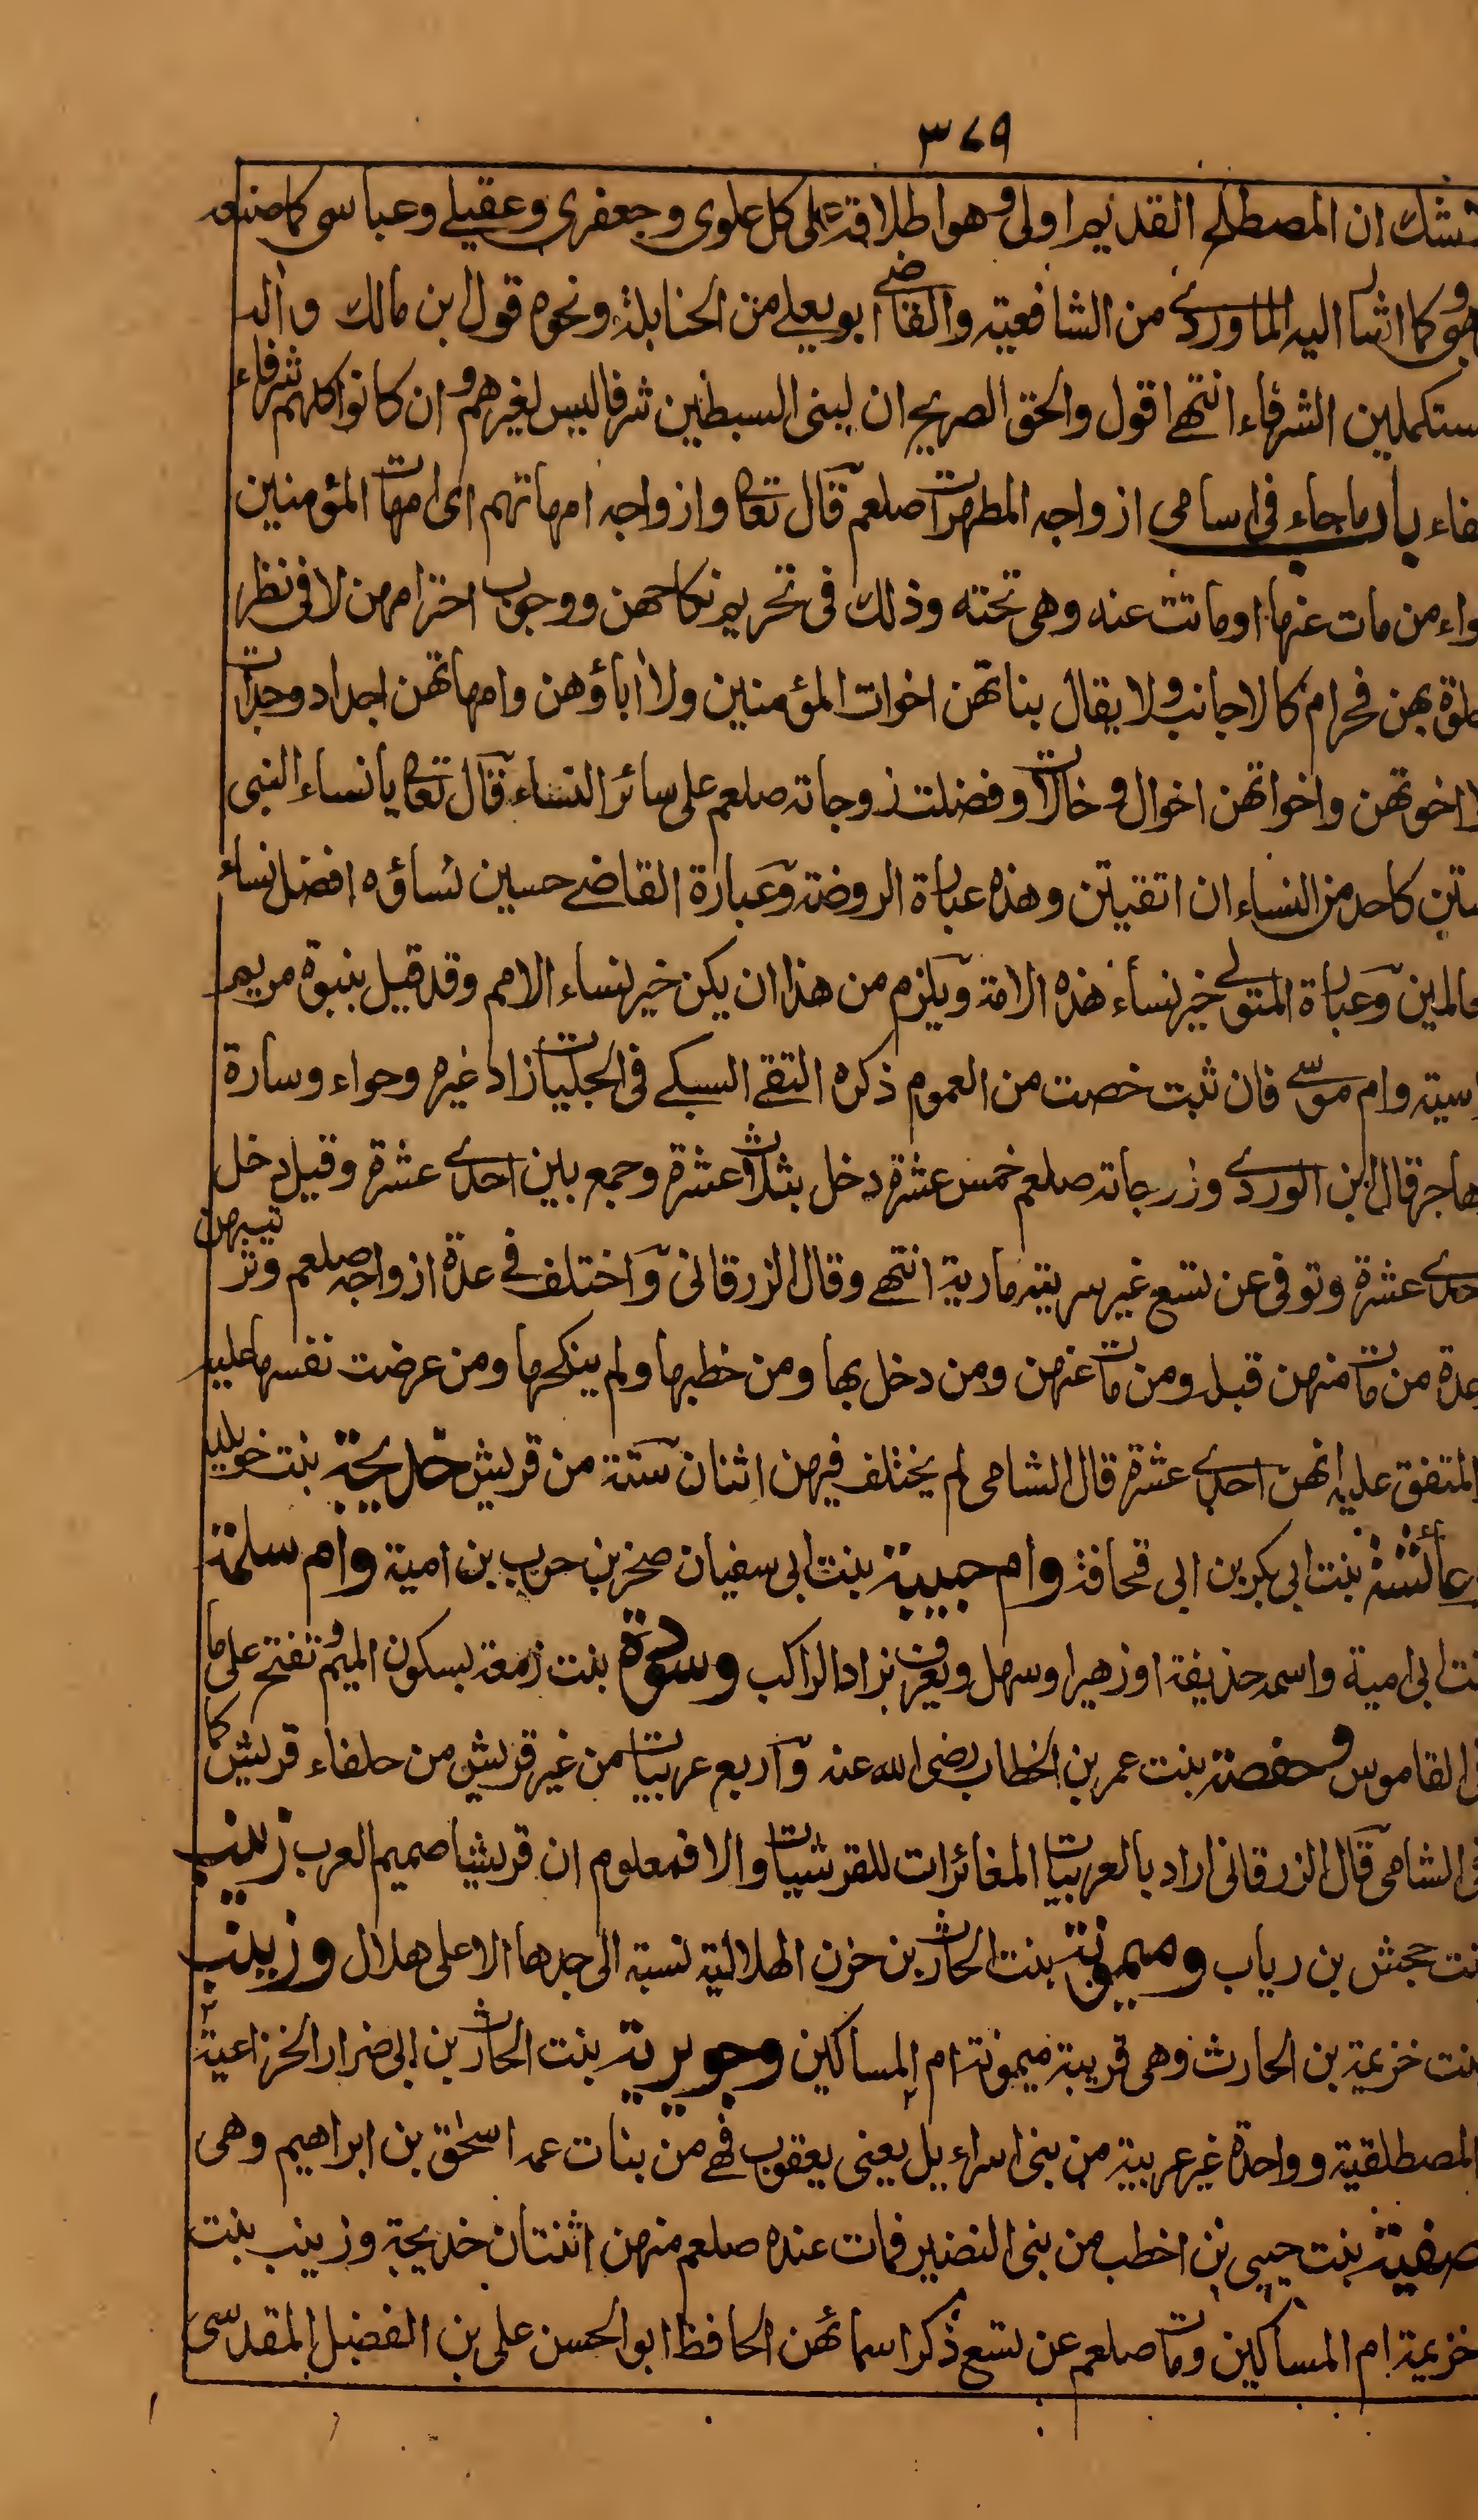 ٣٧٩
شك ان المصطلح القديم اولى وهو اطلاقه على كل علوى وجعفرى وعقيلے وعباسى كما صنعه
هو وكما اشار اليه الماوردے من الشافعية والقاضے ابو يعلے من الحنابلة ونحوه قول ابن مالك واٰله
ستكملين الشرفاء انتهے اقول والحق الصريح ان لبنى السبطين شرفا ليس لغيرهم وان كانوا كلهم شرفاء
فاء باب ما جاء فى اسامى ازواجه المطهرات صلعم قال تعا وازواجه امهاتهم اى امهات المؤمنين
واء من مات عنها او ماتت عنه وهى تحته وذلك فى تحريم نكاحهن ووجوب احترامهن لا فى نظر
لوة بهن فحرام كالاجانب ولا يقال بناتهن اخوات المؤمنين ولا اٰباؤهن وامهاتهن اجداد وجدات
ا اخوتهن واخواتهن اخوال وخالات وفضلت زوجاته صلعم على سائر النساء قال تعا يا نساء النبى
ستن كاحد من النساء ان اتقيتن وهذه عبارة الروضة وعبارة القاضے حسين نساؤه افضل نساء
عالمين وعبارة المتولے خير نساء هذه الامة ويلزم من هذا ان يكن خير نساء الامم وقد قيل بنبوة مريم
اسية وام موسے فان ثبت خصت من العموم ذكره التقے السبكے فى الحلبيات زاد غيره وحواء وسارة
هاجر قال ابن الوردے وزوجاته صلعم خمس عشرة دخل بثلاث عشرة وجمع بين احدے عشرة وقيل دخل
حدے عشرة وتوفى عن تسع غير سريته مارية انتهے وقال الزرقانى واختلف فے عدة ازواجه صلعم وترتيبهن
عدة من مات منهن قبله ومن مات عنهن ومن دخل بها ومن خطبها ولم ينكحها ومن عرضت نفسها عليه
المتفق عليه انهن احدے عشرة قال الشامى لم يختلف فيهن اثنان ستة من قريش خديجة بنت خويليد
وعائشة بنت ابى بكر بن ابى قحافة وام حبيبة بنت ابى سفيان صخر بن حرب بن امية وام سلمة
نت ابى امية واسمه حذيفة او زهير او سهل ويعرف بزاد الراكب وسودة بنت زمعة بسكون الميم وتفتح على ما
فى القاموس وحفصة بنت عمر بن الخطاب رضى الله عنه واربع عربيات من غير قريش من حلفاء قريش كما
فى الشامى قال الزرقانى اراد بالعربيات المغائرات للقرشيات والا فمعلوم ان قريشيا صميم العرب زينب
نت جحش بن رياب وميمونة بنت الحارث بن حزن الهلالية نسبة الى جدها الاعلى هلال وزينب
بنت خزيمة بن الحارث وهى قريبة ميمونة ام المساكين وجويرية بنت الحارث بن ابى ضرار الخزاعية
المصطلقية وواحدة غير عربية من بنى اسراءيل يعنى يعقوب فهے من بنات عمه اسحٰق بن ابراهيم وهى
صفية بنت حيى بن اخطب من بنى النضير فمات عنده صلعم منهن اثنتان خديجة وزينب بنت
خزيمة ام المساكين ومات صلعم عن تسع ذكر اسمائهن الحافظ ابو الحسن على بن الفضل المقدسى